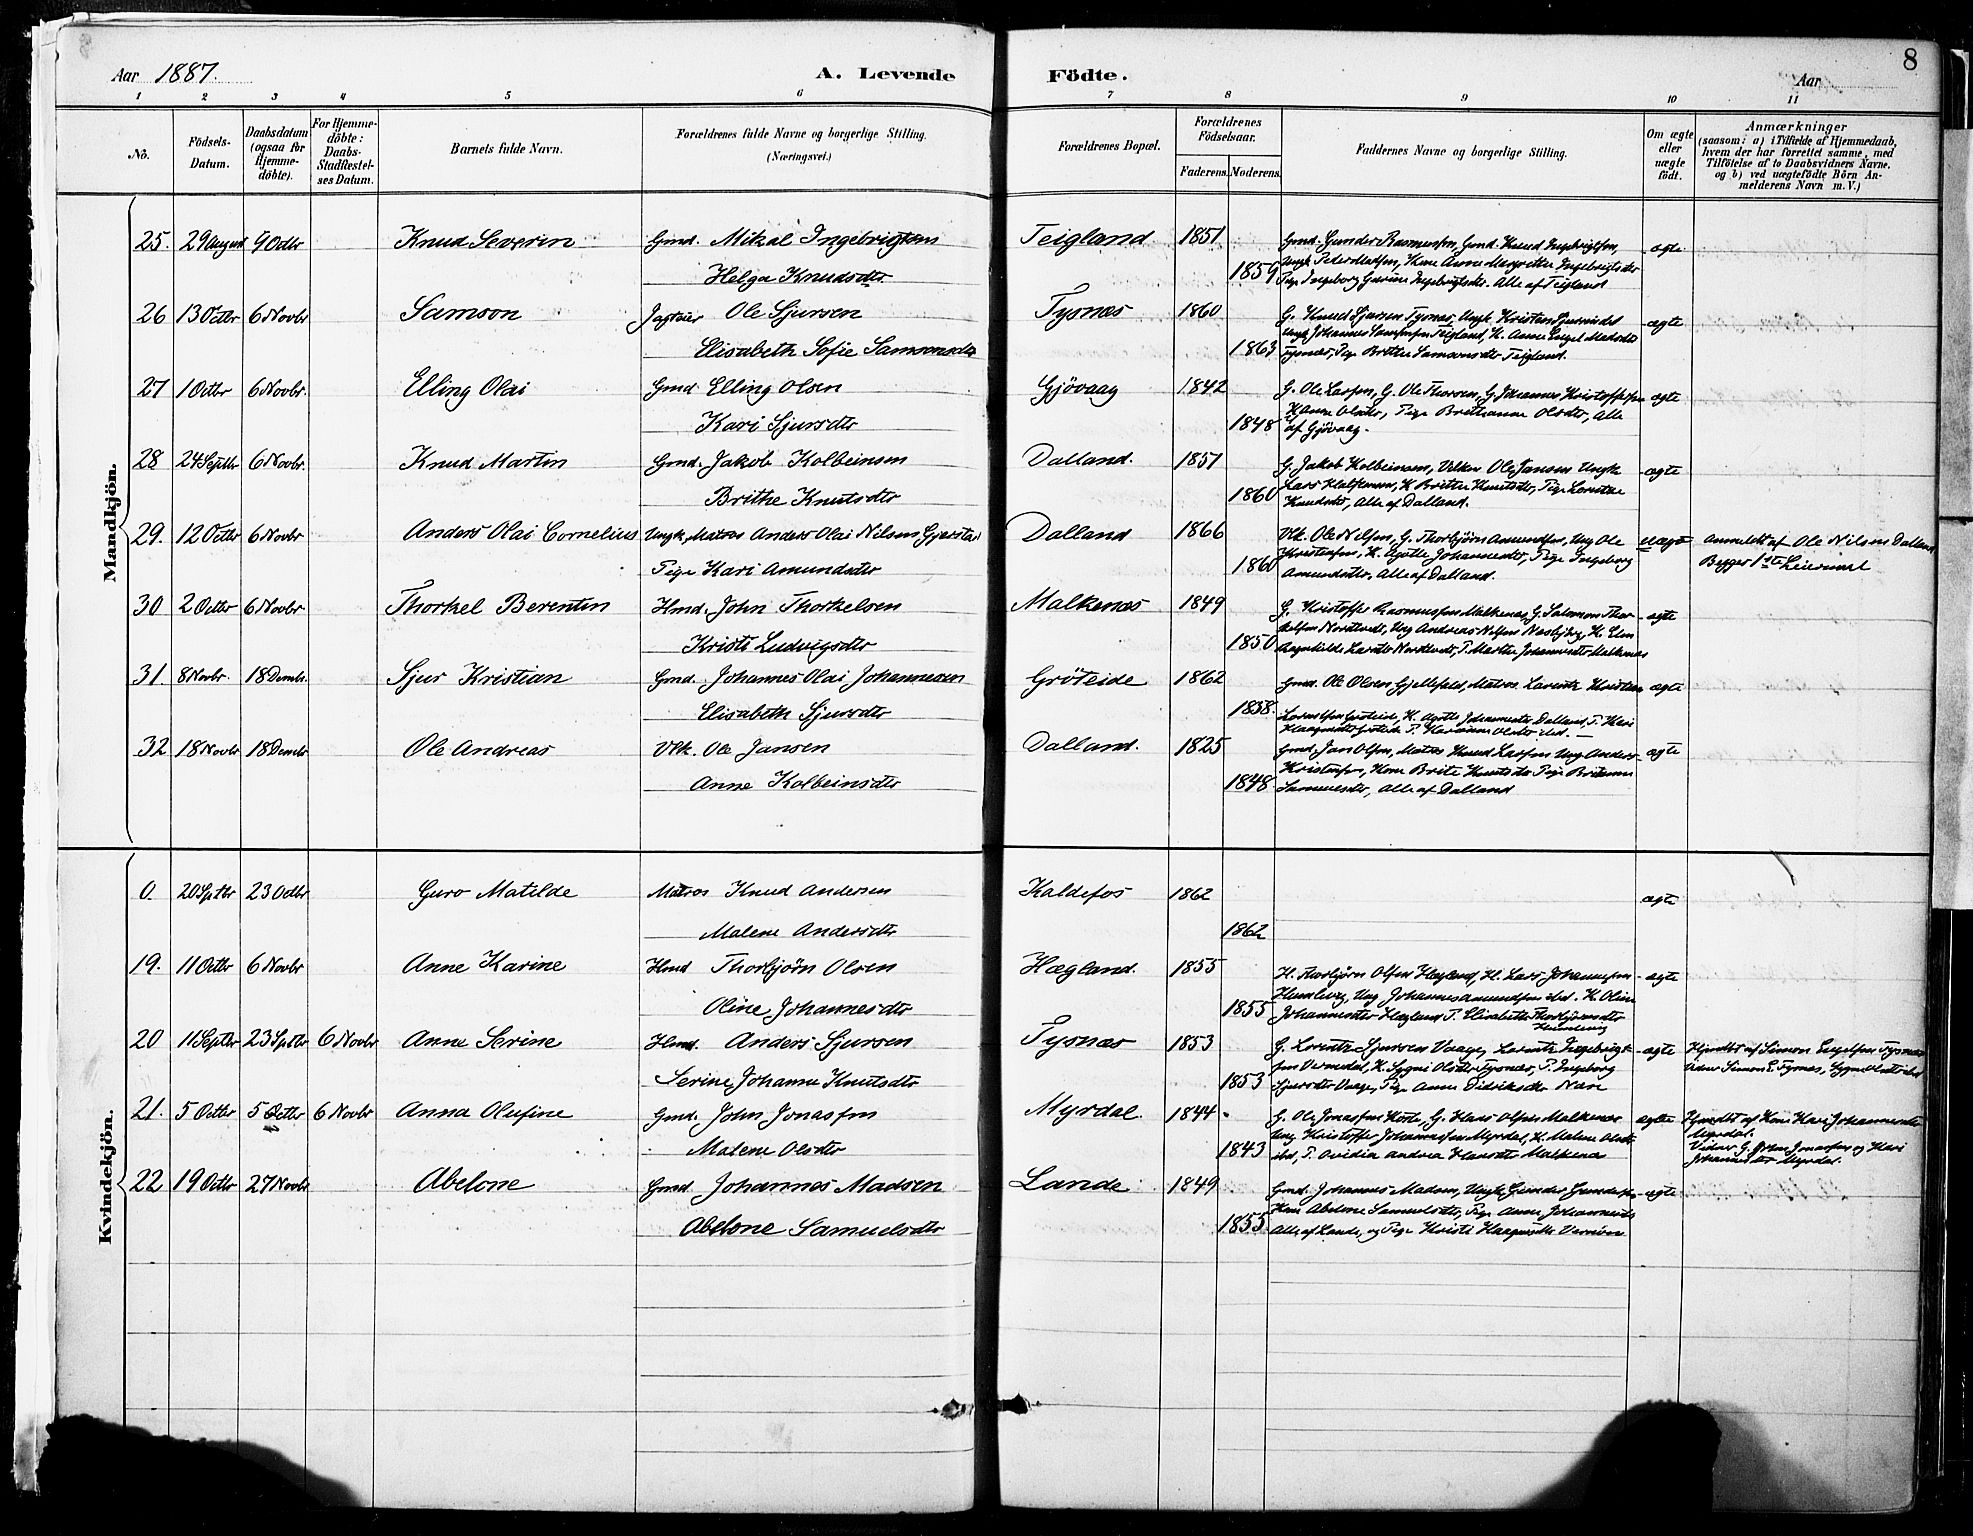 8
Aar 1887.
A. Levende Födte.
Aar
1 2 3 4 5 6 7 8 9 10 11
No.
Födsels-Datum.
Daabsdatum (ogsaa for Hjemme-döbte).
For Hjemme-döbte: Daabs-Stadfæstel-ses Datum.
Barnets fulde Navn.
Forældrenes fulde Navne og borgerlige Stilling. (Næringsvei.)
Forældrenes Bopæl.
Forældrenes Födselsaar.
Faderens. Moderens.
Faddernes Navne og borgerlige Stilling.
Om ægte eller uægte födt.
Anmærkninger
(saasom: a) i Tilfælde af Hjemmedaab, hvem der har forrettet samme, med Tilföielse af to Daabsvidners Navne. og b) ved uægtefödte Börn An-melderens Navn m. V.)
Mandkjön.
25. 29 August 9 Octbr Knud Severin Gmd. Mikal Ingebrigtsen Teigland 1851 Gmd. Gunder Rasmussen, Gmd. Knud Ingebrigtsen, ægte
Helga Knudsdtr 1859 Ungk Peder Madsen, Kone Anne Margrethe Ingebrigtsdtr
Pige Ingeborg Ingebrigtsdtr. Alle af Teigland
26 13 Octbr 6 Novbr Samson Ole Sjursen Tysnæs 1860 G. Knud Sjursen Tysnæs, Ungk. Kristian ægte
Elisabeth Sofie Samsonsdtr 1863 Ungk Johannes Samsonsen Teigland, K. Anne Engel Madsdtr
Tysnæs, Pige Brithe Samsonsdtr Teigland.
27 1 Octbr 6 Novbr. Elling Olai Gmd Elling Olsen Gjövaag 1842 G. Ole Larsen, G. Ole Thorsen, G. Johannes Kristoffersen ægte
Kari Sjursdtr 1848 K. Anne Olsdtr, Pige Brithanne Olsdtr, Alle
af Gjövaag.
28 24 Septbr 6 Novbr. Knud Martin Gmd. Jakob Kolbeinsen Dalland. 1851 G. Jakob Kolbeinsen, Ole Jansen Ungk ægte
Brithe Knutsdtr 1860 Lars K Brithe Knutsdtr, Pige
Knudsdtr, Alle af Dalland.
29. 12 Octbr 6 Novbr Anders Olai Cornelius Ungk, Matros Anders Olai Nilsen Gjerstad Dalland 1866 Vlk. Ole Nilsen, G. Thorbjörn Amundsen, Ung Ole uægte Anmeldt af Ole Nilsen Dalland
Pige Kari Amundsdtr 1860 Kristensen, K. Agathe Johannesdtr, Pige Ingeborg Begges 1ste Leiermaal
Amundsdtr, Alle af Dalland.
30 2 Octbr 6 Novbr Thorkel Berentin Hmd. John Thorkelsen Malkenæs 1849 G. Kristoffer Rasmussen Malkenæs, G. Salomon Thor- ægte
Kristi Ludvigsdtr 1850 kelsen Nordtvedt, Ung Andreas Nilsen K. Elen
Ragnhilde Larsdtr Nordtvedt, P. Marthe Johannesdtr Malkenæs
31. 8 Novbr. 18 Decmbr. Sjur Kristian Gmd. Johannes Olai Johannesen Gröteide 1862 Gmd. Ole Olsen Gjellefald, Matros. Lorentz Kristian ægte
Elisabeth Sjursdtr 1858. K. Agathe Johannesdtr Dalland P. Kari
32 18 Novbr 18 Decmbr Ole Andreas Vlk. Ole Jansen Dalland. 1825 Gmd. Jan Olsen, Matros Knud Larsen Ung Anders ægte
Anne Kolbeinsdtr 1848. Kristensen, Kone Brite Knutsdtr Pige
Samuelsdtr, Alle af Dalland
Kvindekjön.
0. 20 Sptbr 23 Octbr Guro Matilde Matros Knud Andersen Kaldefos 1862 ægte
Malene Andersdtr 1862
19. 11 Octbr 6 Novbr Anne Karine Hmd Thorbjörn Olsen Hægland. 1855 H. Thorbjörn Olsen Hægland, H. Lars Johannessen ægte
Oline Johannesdtr 1855 Ung Johannes Amundsen ibd. K. Oline
Johannesdtr Hægland P. Elisabeth Thorbjörnsdtr
20 11 Septbr 23 Sptbr 6 Novbr Anne Serine Hmd. Anders Sjursen Tysnæs 1853 G. Lorentz Sjursen Vaage, Lorentz Ingebrigt- ægte Hjmdbt af Simon Engelsen Tysnæs
Serine Johanne Knutsdtr 1853 sen K. Sygni Olsdtr Tysnæs, P. Ingeborg Simon E. Tysnæs,
Sjursdtr Vaage, Pige Anne Didriksdtr
21. 5 Octbr 5 Octbr 6 Novbr Anna Olufine Gmd. John Jonassen Myrdal. 1844 G. Ole Jonassen G. Hans Olsen Malkenæs ægte Hjmdbt af Kone Kari Johannesdtr
Malene Olsdtr 1843 Ung Kristoffer Johannessen Myrdal, K. Malene Olsdtr Myrdal.
ibd, P. Ovidia Andrea Hansdtr Malkenæs Vidner G. John Jonassen og Kari
Johannesdtr Myrdal.
22 19 Octbr 27 Novbr Abelone Gmd. Johannes Madsen Lande 1849 Gmd. Johannes Madsen, Ungk Gunder ægte
Abelone Samuelsdtr 1855. Kone Abelone Samuelsdtr, Pige Anne Johannesdtr
Alle af Lande, og Pige Kristi